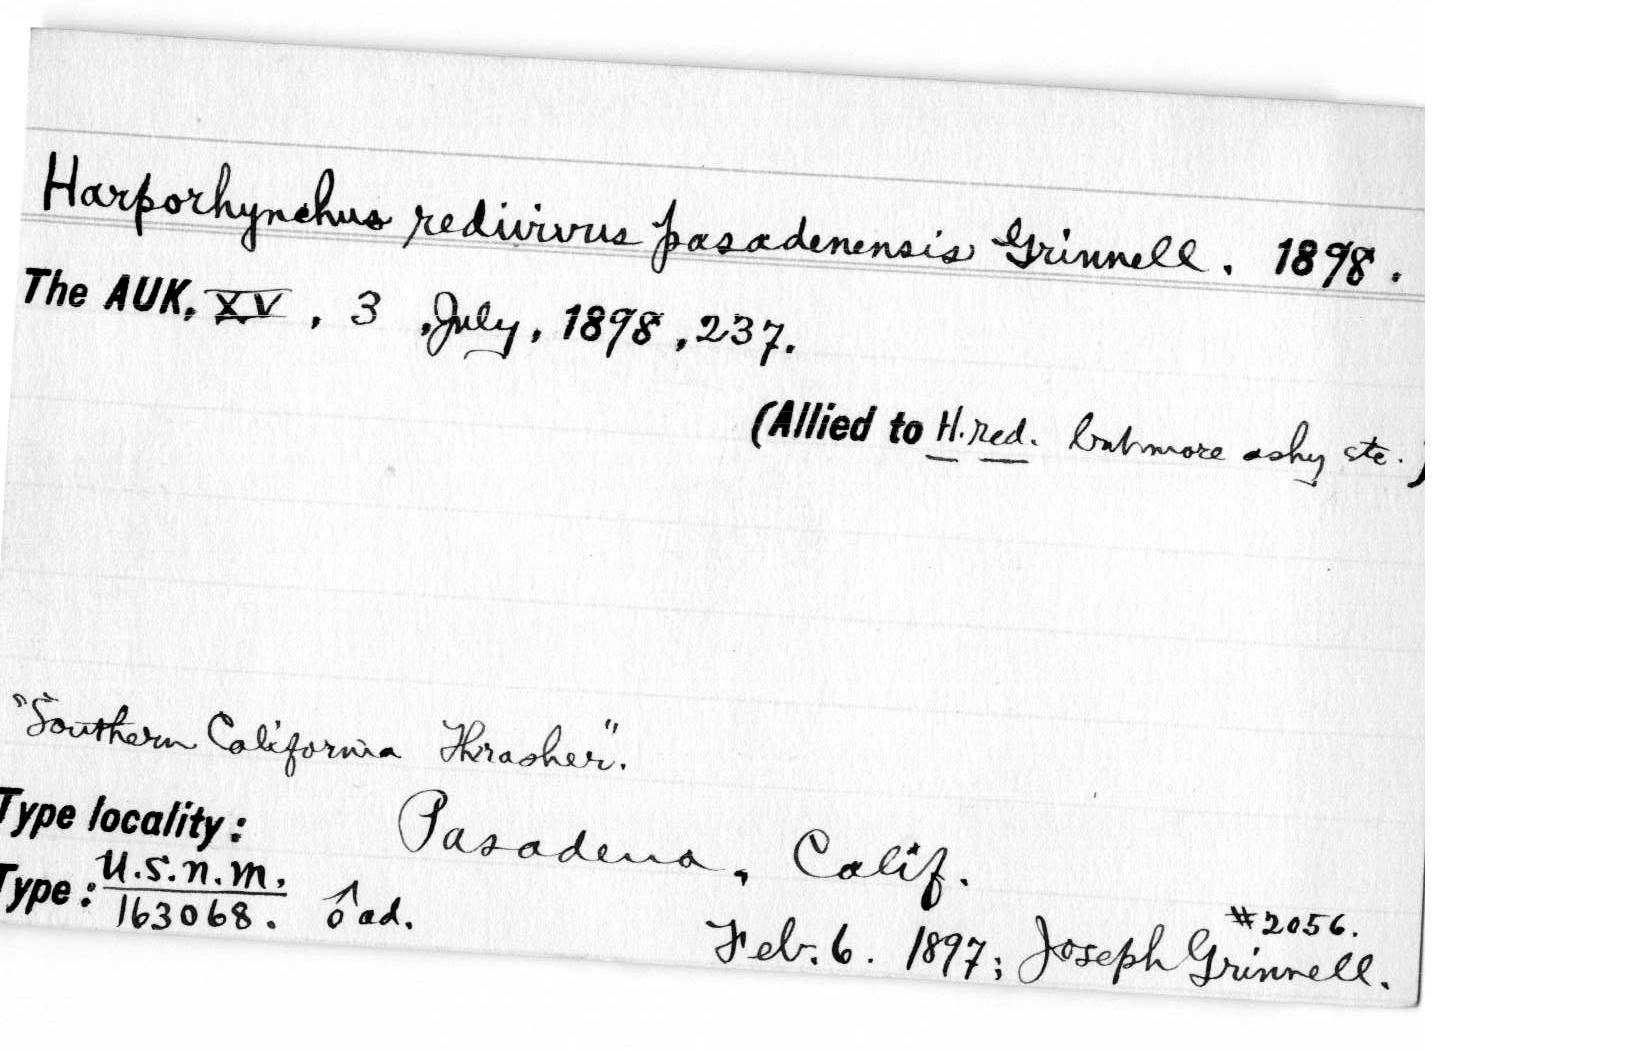 Harporhynchus redivivus pasadenensis Grinnell. 1898.
The AUK, XV, 3, July, 1898, 237.
(Allied to H. red. but more ashy etc.)
"Southern California Thrasher".
Type locality: Pasadena, Calif.
Type: U.S.N.M. 163068. ♂ ad.
#2056.
Feb. 6. 1897; Joseph Grinnell.